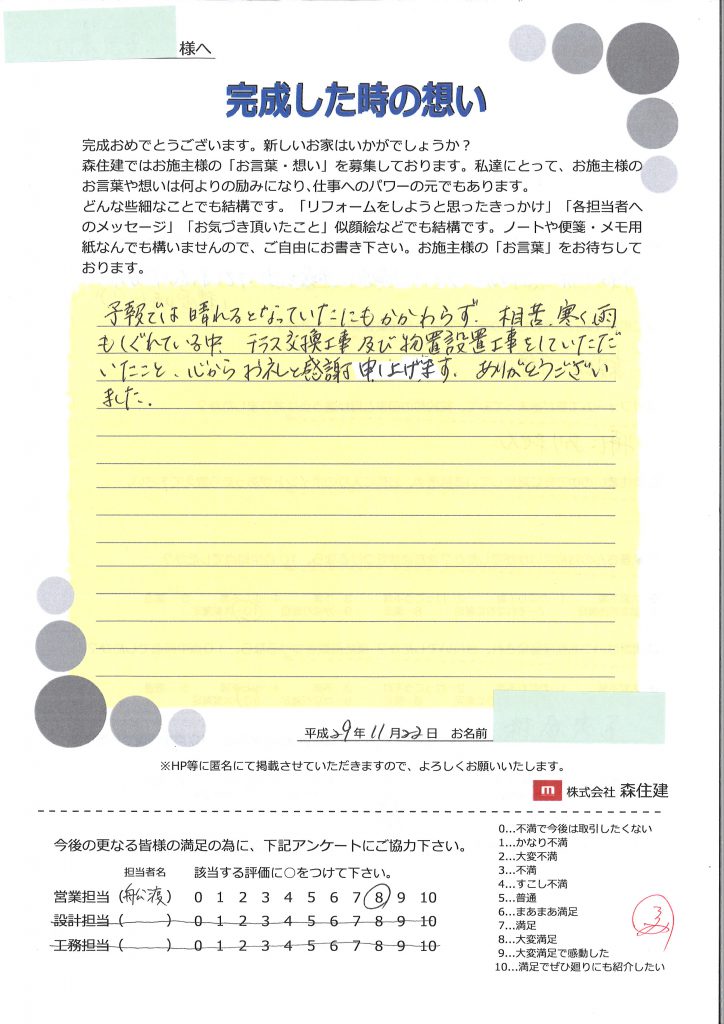 様へ
完成した時の想い
完成おめでとうございます。新しいお家はいかがでしょうか？
森住建ではお施主様の「お言葉・想い」を募集しております。私達にとって、お施主様の
お言葉や想いは何よりの励みになり、仕事へのパワーの元でもあります。
どんな些細なことでも結構です。「リフォームをしようと思ったきっかけ」「各担当者へ
のメッセージ」「お気づき頂いたこと」似顔絵などでも結構です。ノートや便箋・メモ用
紙なんでも構いませんので、ご自由にお書き下さい。お施主様の「お言葉」をお待ちして
おります。
予報では晴れるとなっていたにもかかわらず、相当、寒く雨
もしぐれている中、テラス交換工事及び物置設置工事をしていただ
いたこと、心からお礼と感謝申し上げます。ありがとうござい
ました。
平成29年11月22日 お名前
※HP等に匿名にて掲載させていただきますので、よろしくお願いいたします。
m 株式会社 森住建
今後の更なる皆様の満足の為に、下記アンケートにご協力下さい。
担当者名 該当する評価に○をつけて下さい。
営業担当（舩渡）0 1 2 3 4 5 6 7 8 9 10
設計担当（ ）0 1 2 3 4 5 6 7 8 9 10
工務担当（ ）0 1 2 3 4 5 6 7 8 9 10
0…不満で今後は取引したくない
1…かなり不満
2…大変不満
3…不満
4…すこし不満
5…普通
6…まあまあ満足
7…満足
8…大変満足
9…大変満足で感動した
10…満足でぜひ廻りにも紹介したい